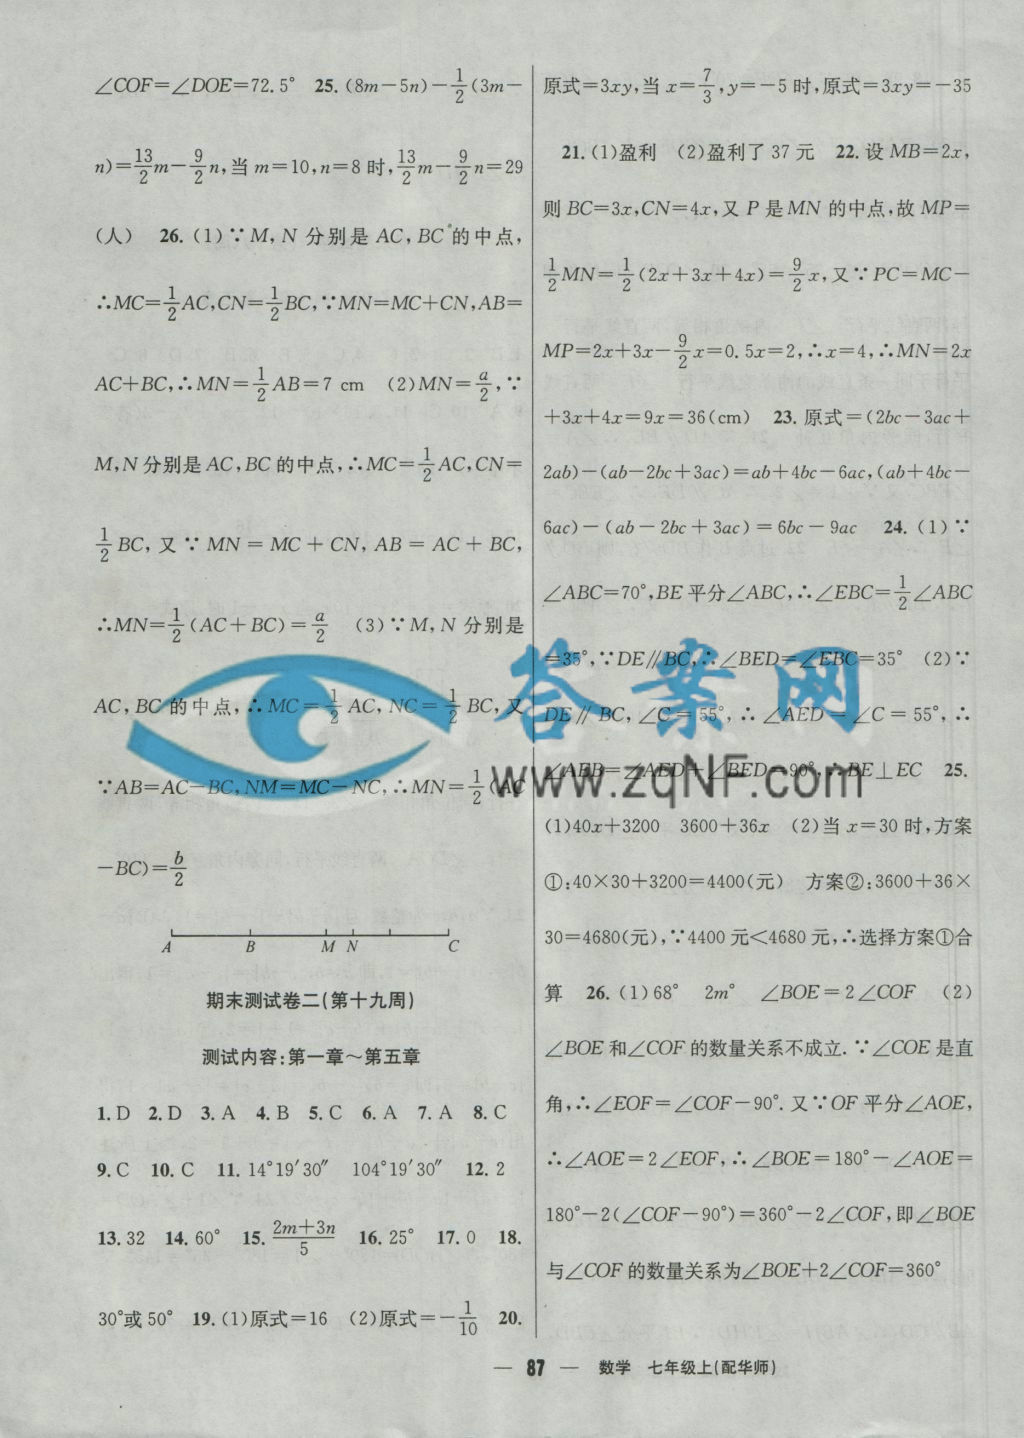 ∠COF=∠DOE=72.5° 25. (8m-5n)-1/2(3m-
n)=13/2m-9/2n,当 m=10,n=8 时,13/2m-9/2n=29
(人) 26. (1)∵M,N 分别是 AC,BC 的中点,
∴MC=1/2AC,CN=1/2BC,∵MN=MC+CN,AB=
AC+BC,∴MN=1/2AB=7 cm (2)MN=a/2,∵
M,N分别是AC,BC的中点,∴MC=1/2AC,CN=
1/2BC,又∵MN=MC+CN,AB=AC+BC,
∴MN=1/2(AC+BC)=a/2 (3)∵M,N分别是
AC,BC的中点,∴MC=1/2AC,NC=1/2BC,又
∵AB=AC-BC,NM=MC-NC,∴MN=1/2(AC
-BC)=b/2
A B M N C
期末测试卷二(第十九周)
测试内容:第一章~第五章
1. D 2. D 3. A 4. B 5. C 6. A 7. A 8. C
9. C 10. C 11. 14°19′30″ 104°19′30″ 12. 2
13. 32 14. 60° 15. (2m+3n)/5 16. 25° 17. 0 18.
30°或50° 19. (1)原式=16 (2)原式=-1/10 20.
原式=3xy,当 x=7/3,y=-5时,原式=3xy=-35
21. (1)盈利 (2)盈利了37元 22. 设MB=2x,
则BC=3x,CN=4x,又P是MN的中点,故MP=
1/2MN=1/2(2x+3x+4x)=9/2x,又∵PC=MC-
MP=2x+3x-9/2x=0.5x=2,∴x=4,∴MN=2x
+3x+4x=9x=36(cm) 23. 原式=(2bc-3ac+
2ab)-(ab-2bc+3ac)=ab+4bc-6ac,(ab+4bc-
6ac)-(ab-2bc+3ac)=6bc-9ac 24. (1)∵
∠ABC=70°,BE平分∠ABC,∴∠EBC=1/2∠ABC
=35°,∵DE∥BC,∴∠BED=∠EBC=35° (2)∵
DE∥BC,∠C=55°,∴∠AED=∠C=55°,∴
∠AEB=∠AED+∠BED=90°,∴BE⊥EC 25.
(1)40x+3200 3600+36x (2)当x=30时,方案
①:40×30+3200=4400(元) 方案②:3600+36×
30=4680(元),∵4400元<4680元,∴选择方案①合
算 26. (1)68° 2m° ∠BOE=2∠COF (2)
∠BOE和∠COF的数量关系不成立.∵∠COE是直
角,∴∠EOF=∠COF-90°.又∵OF平分∠AOE,
∴∠AOE=2∠EOF,∴∠BOE=180°-∠AOE=
180°-2(∠COF-90°)=360°-2∠COF,即∠BOE
与∠COF的数量关系为∠BOE+2∠COF=360°
答案网
www.zqNF.com
— 87 — 数学 七年级上(配华师)